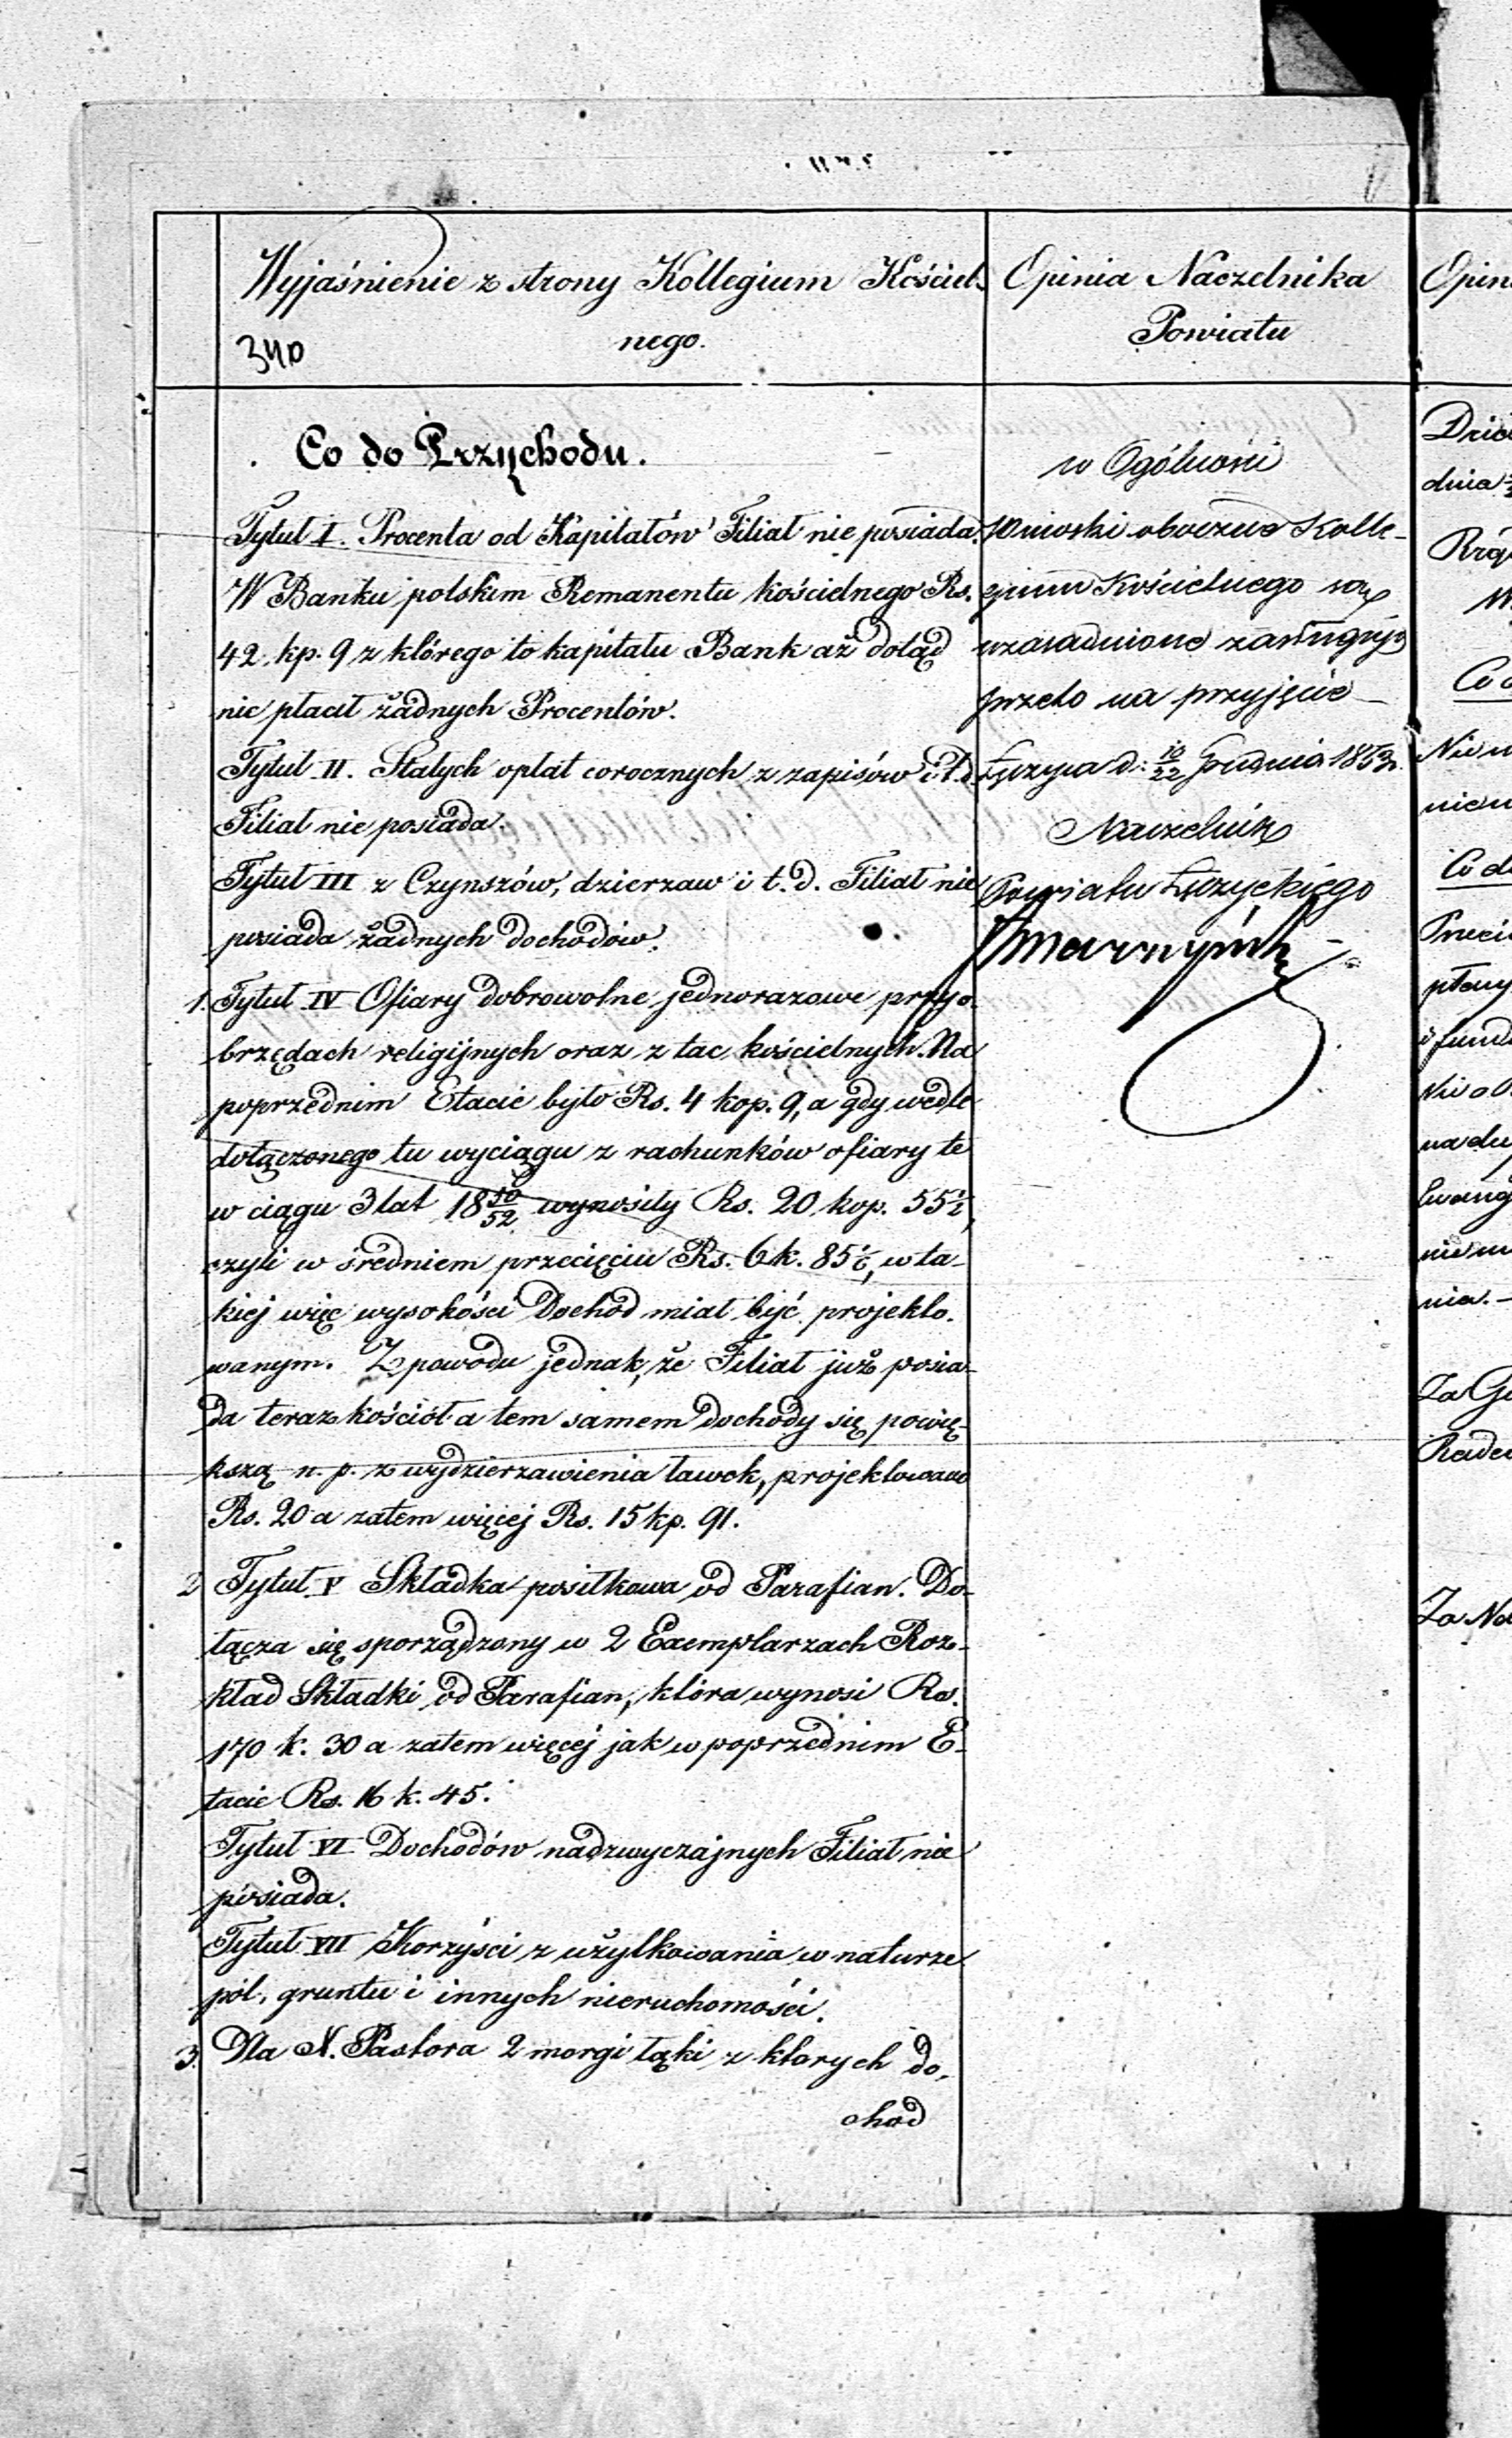 Wyjaśnienie z strony Kollegium Kościel-
nego.
340
Co do Przychodu.
Tytuł I. Procenta od Kapitałów Filiał nie posiada.
W Banku polskim Remanentu kościelnego Rs.
42 kp. 9 z którego to kapitału Bank aż dotąd
nie płacił żadnych Procentów.
Tytuł II. Stałych opłat corocznych z zapisów i t.d.
Filiał nie posiada.
Tytuł III z Czynszów, dzierzaw i t.d. Filiał nie
posiada żadnych dochodów.
1. Tytuł IV Ofiary dobrowolne jednorazowe przy o-
brzędach religijnych oraz z tac kościelnych. Na
poprzednim Etacie było Rs. 4 kop. 9, a gdy wedle
dołączonego tu wyciągu z rachunków ofiary te
w ciągu 3 lat 18 50/52 wynosiły Rs. 20 kop. 55 1/2,
czyli w średniem przecięciu Rs. 6 k. 85 1/2, w ta-
kiej więc wysokości Dochod miał być projekto-
wanym. Z powodu jednak, że Filiał już posia-
da teraz kościół a tem samem dochody się powię-
kszą n. p. z wydzierzawienia ławek, projektowano
Rs. 20 a zatem więcej Rs. 15 kp. 91.
2 Tytuł V Składka posiłkowa od Parafian. Do-
łącza się sporządzony w 2 Exemplarzach Roz-
kład Składki od Parafian, która wynosi Rs.
170 k. 30 a zatem więcej jak w poprzednim E-
tacie Rs. 16 k. 45.
Tytuł VI Dochodów nadzwyczajnych Filiał nie
posiada.
Tytuł VII Korzyści z użytkowania w naturze
pól, gruntu i innych nieruchomości.
3. Dla N. Pastora 2 morgi łąki z których do-
chod
Opinia Naczelnika
Powiatu
w Ogólności
Wnioski oboczne Kolle-
gium Kościelnego są
uzasadnione zasługują
przeto na przyjęcie
Łęczyca d. 10/22 Grudnia 1853 r.
Naczelnik
Powiatu Łęczyckiego
Opin
dnia
Co d
Nie m
niem
Co do
nia. -
Za G
Radc
Za Na